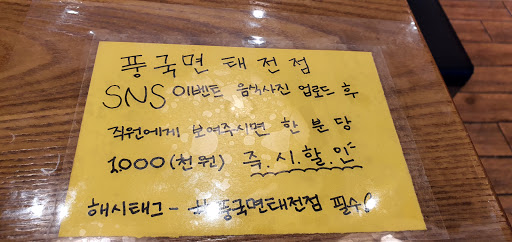 풍국면 태전점
SNS 이벤트 음식사진 업로드 후
직원에게 보여주시면 한 분 당
1,000(천원) 즉.시.할.인
해시태그 - # 풍국면태전점 필수!